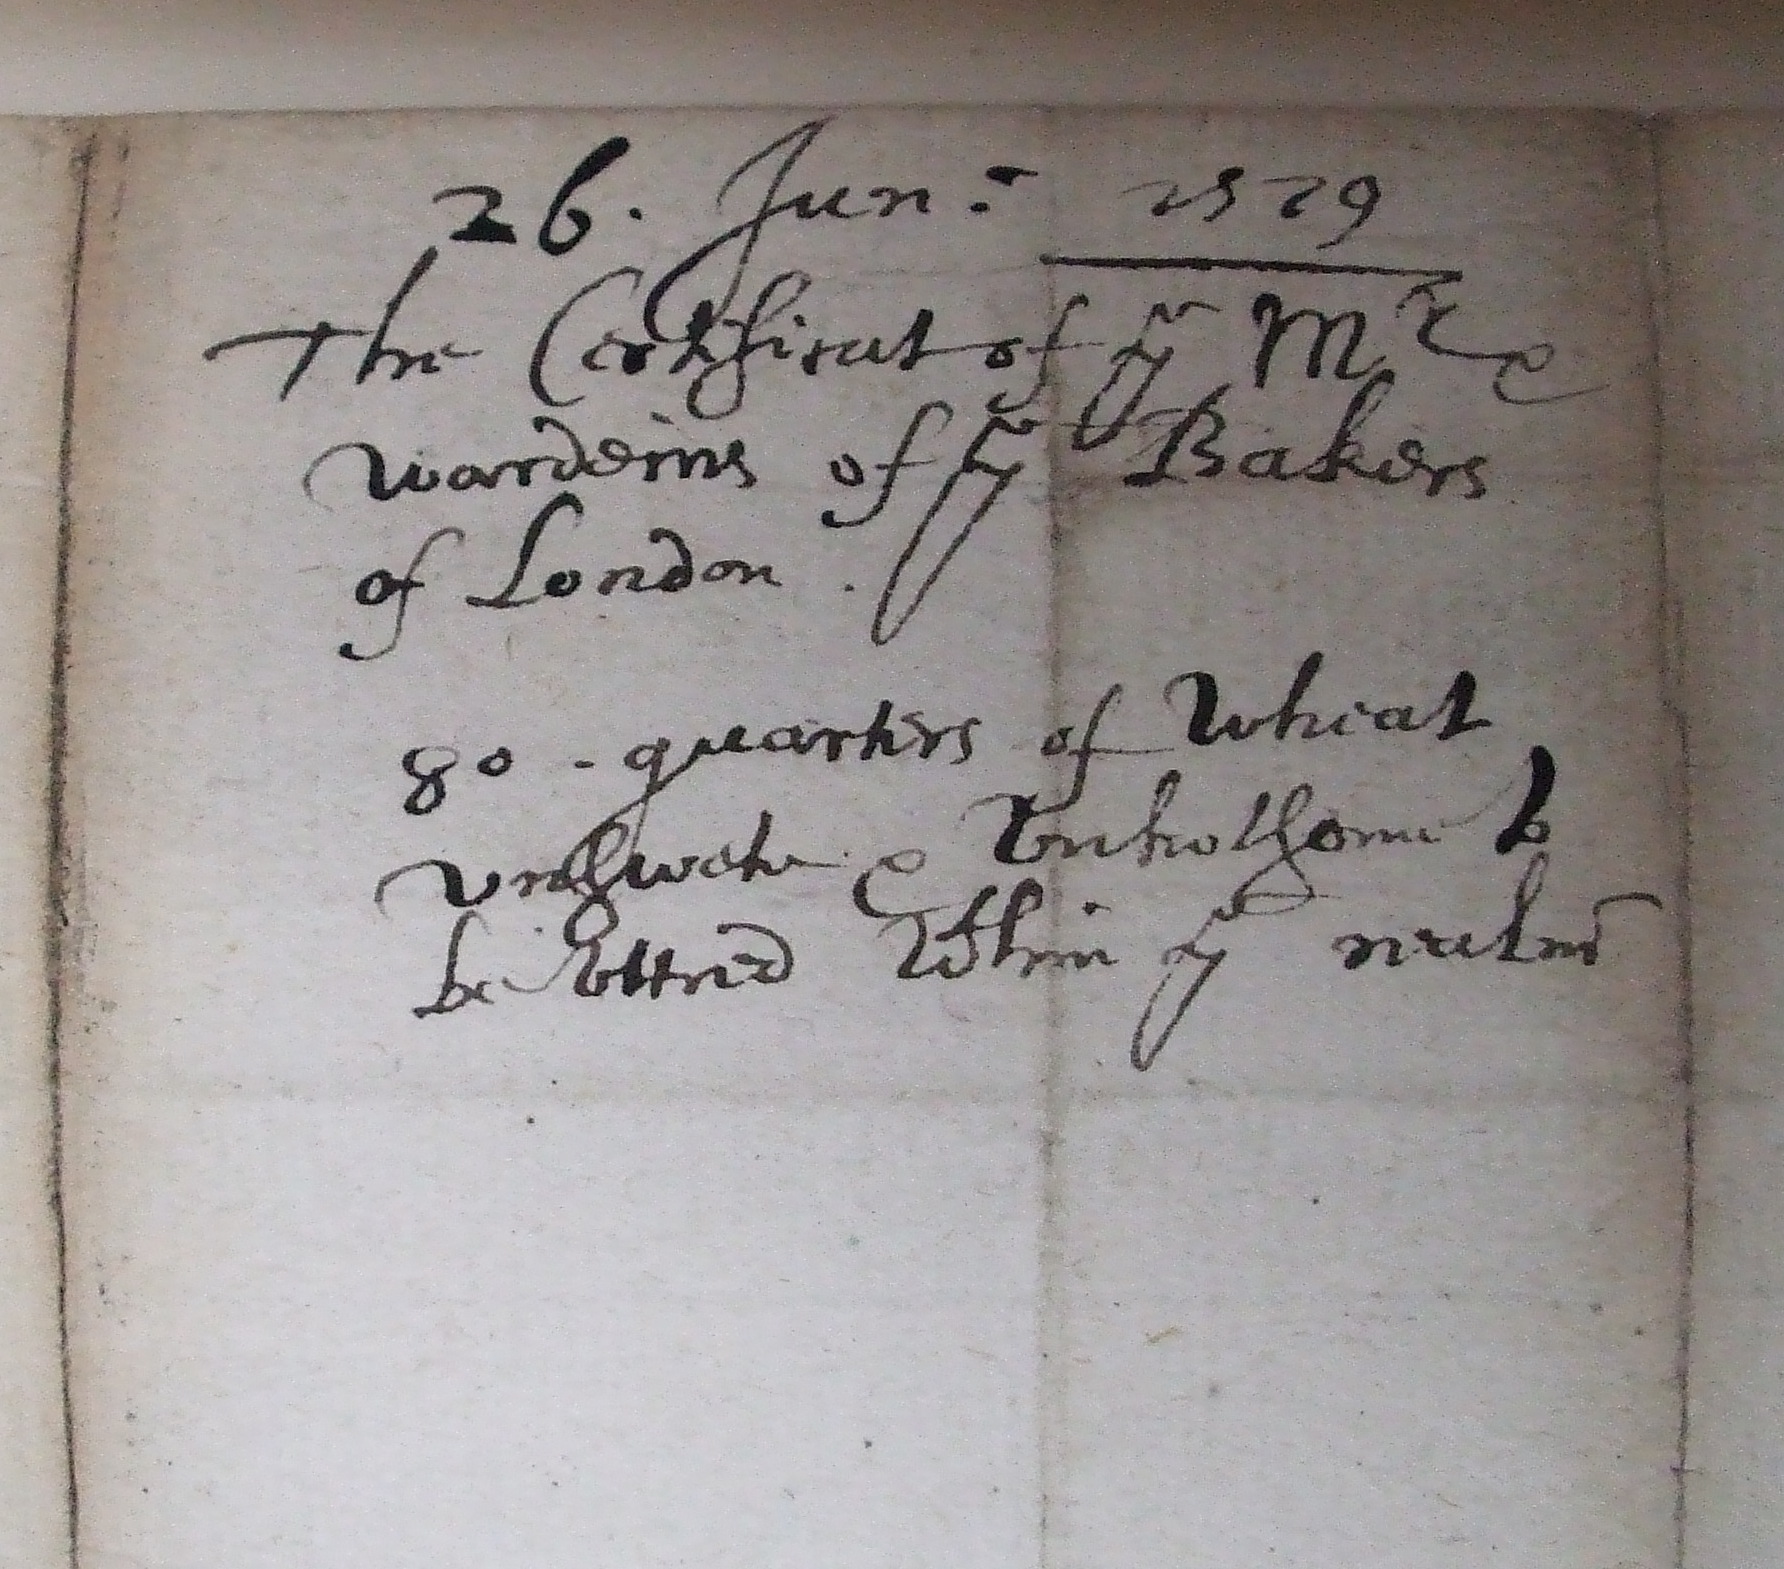 26. Jun: 1579
The Certificat of ye Mr &
wardeins of ye Bakers
of London.
80 - quarters of Wheat
vnswete & vnholsome to
be vttred wthin ye